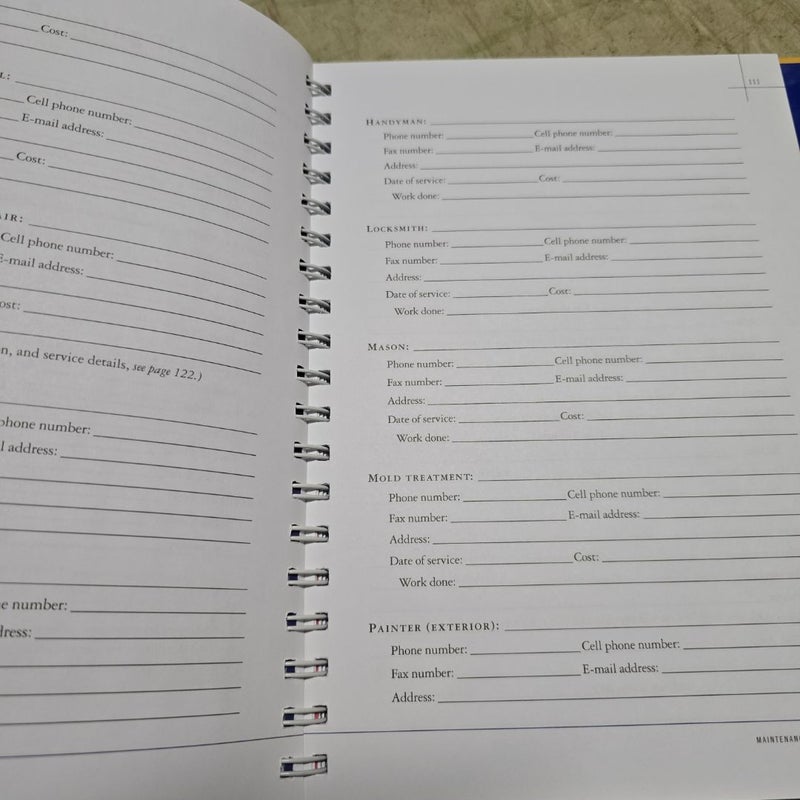 Cost:
Cell phone number:
E-mail address:
Cost:
Cell phone number:
E-mail address:
and service details, see page 122.)
number:
address:
number:
111
HANDYMAN:
Phone number: Cell phone number:
Fax number: E-mail address:
Address:
Date of service: Cost:
Work done:
LOCKSMITH:
Phone number: Cell phone number:
Fax number: E-mail address:
Address:
Date of service: Cost:
Work done:
MASON:
Phone number: Cell phone number:
Fax number: E-mail address:
Address:
Date of service: Cost:
Work done:
MOLD TREATMENT:
Phone number: Cell phone number:
Fax number: E-mail address:
Address:
Date of service: Cost:
Work done:
PAINTER (EXTERIOR):
Phone number: Cell phone number:
Fax number: E-mail address:
Address: